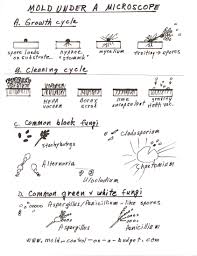 MOLD UNDER A MICROSCOPE
A. Growth cycle
spore lands hyphae mycelium fruiting + spores
on substrate "stomach"
B. Cleaning cycle
HEPA Borax
vacuum scrub
C. Common black fungi
Stachybotrys Cladosporium
Alternaria Chaetomium
Ulocladium
D. Common green & white fungi
Aspergillus/Penicillium-like spores
Aspergillus Penicillium
www.mold-control-on-a-budget.com